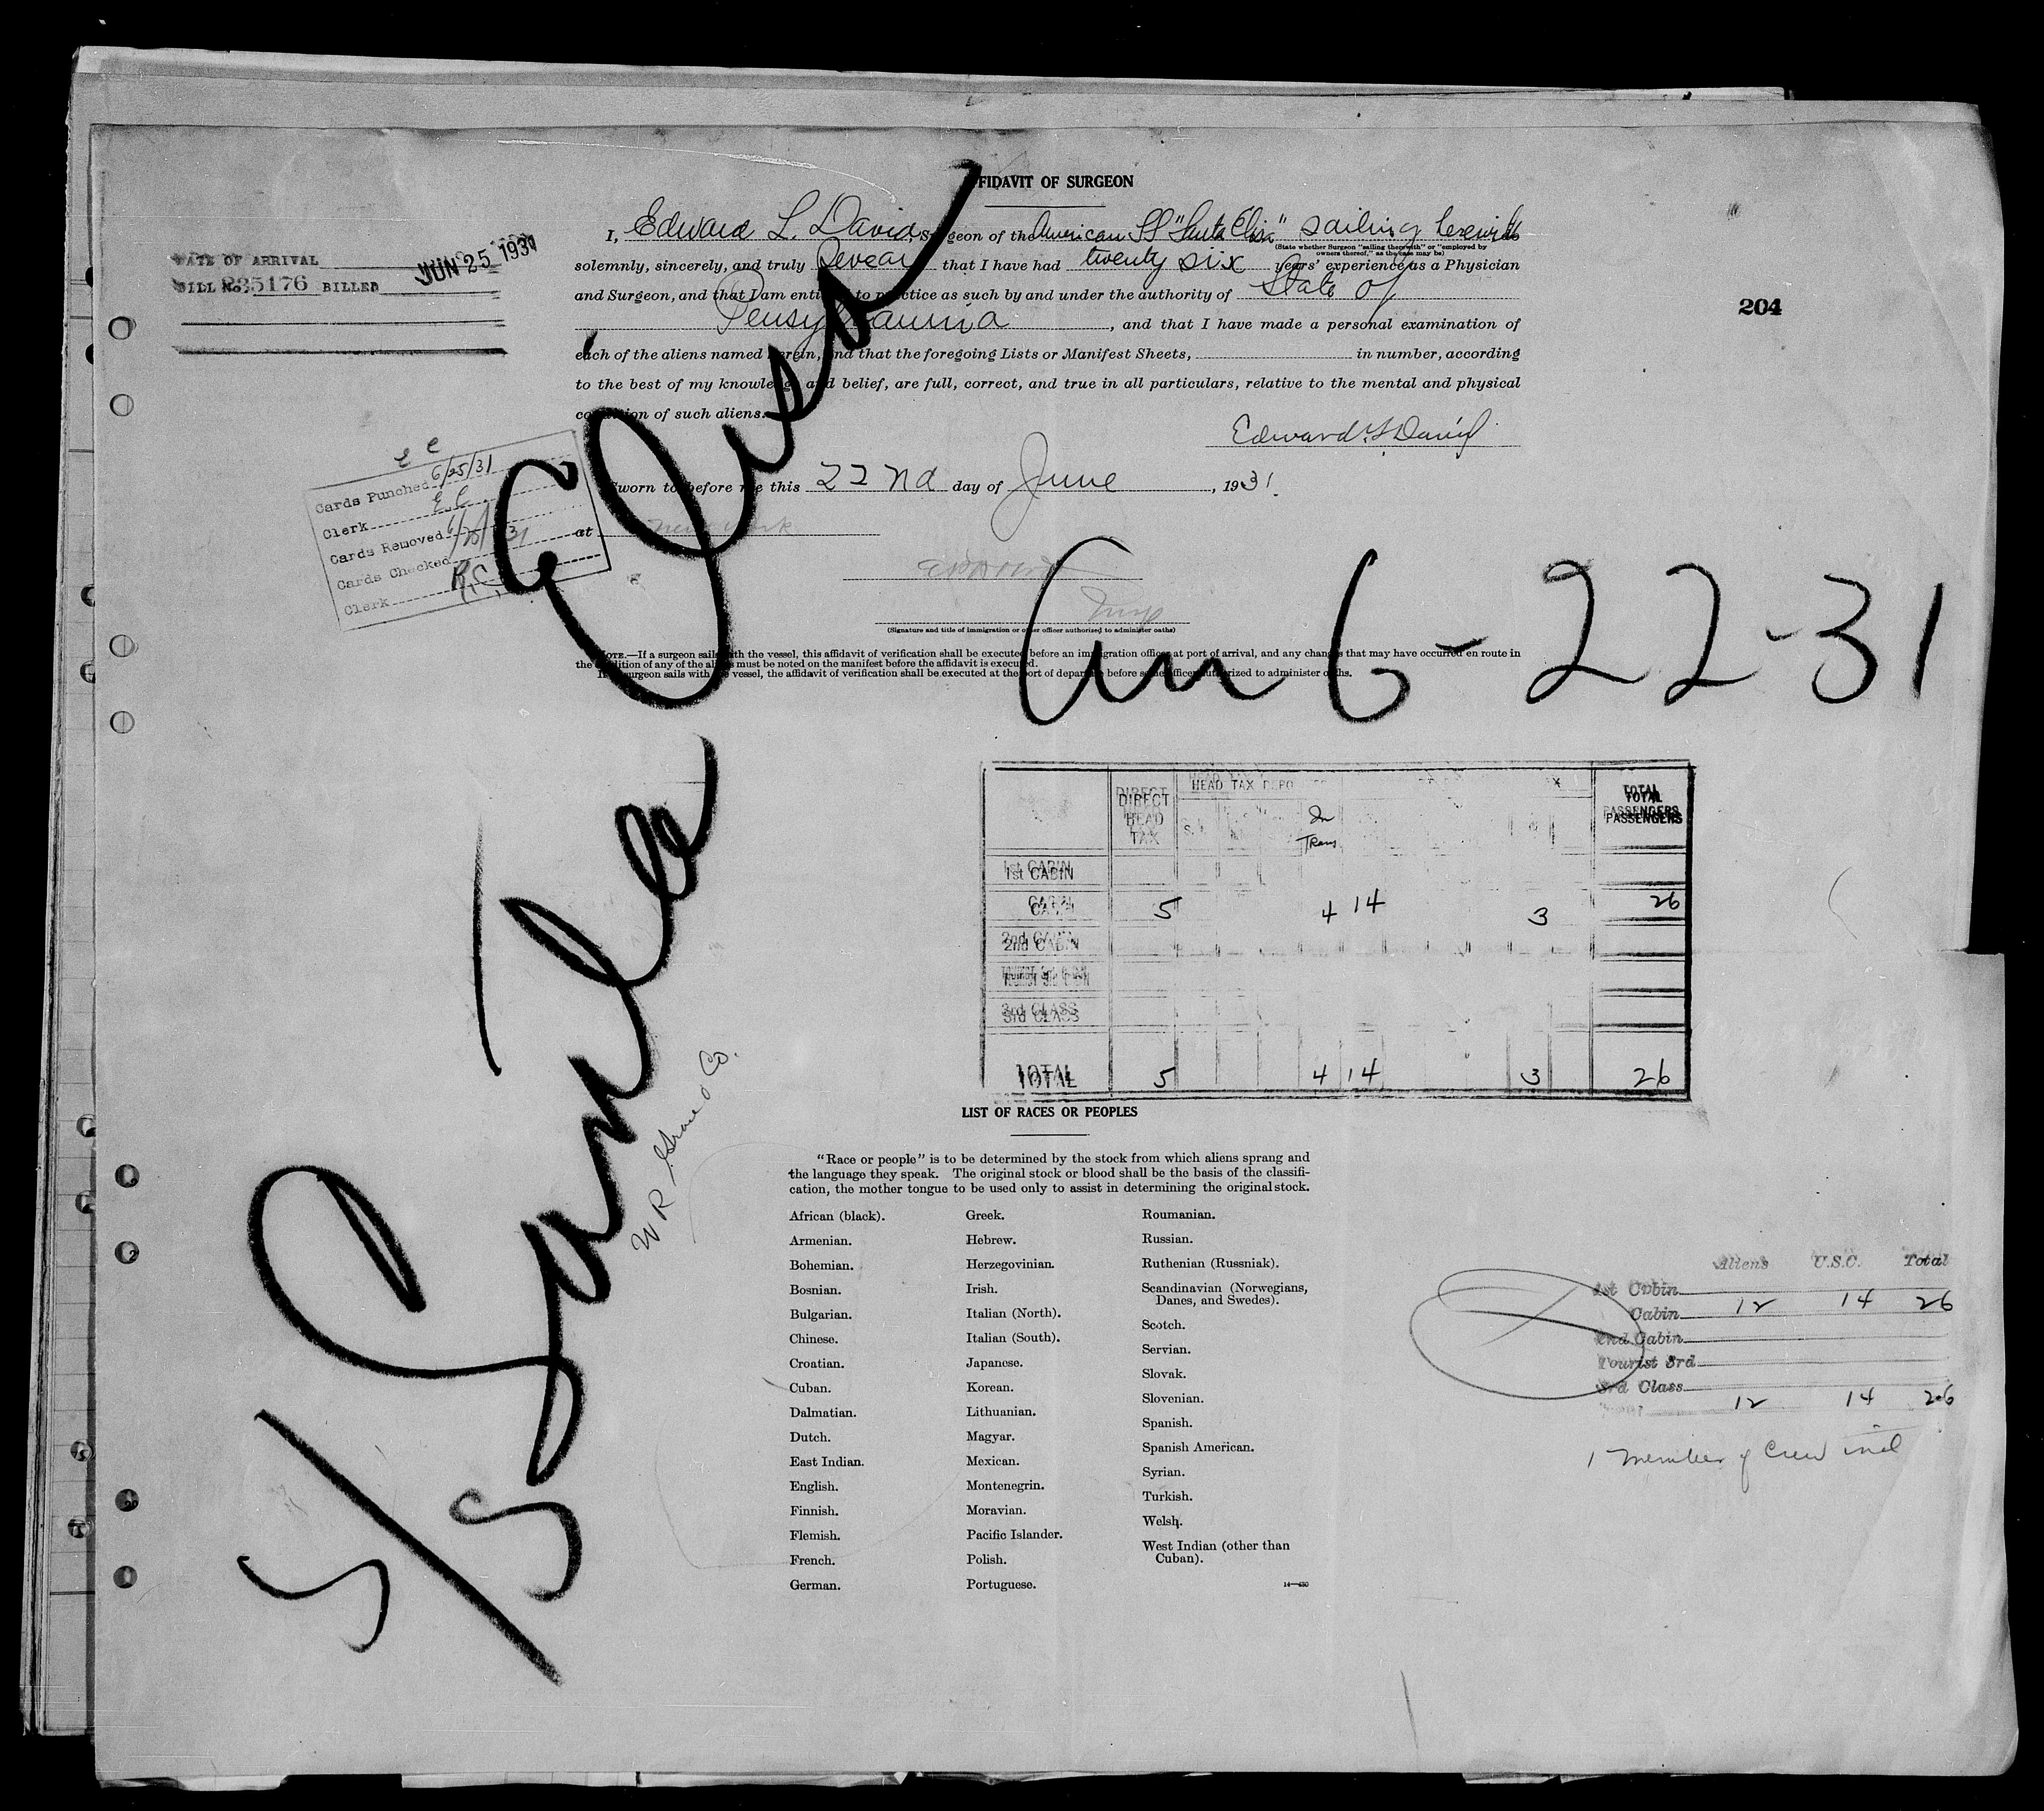 AFFIDAVIT OF SURGEON
I, Edward L. David, Surgeon of the American SS "Santa Elisa" sailing herewith
(State whether Surgeon "sailing therewith" or "employed by
owners thereof," as the case may be)
solemnly, sincerely, and truly Swear that I have had twenty six years' experience as a Physician
and Surgeon, and that I am entitled to practice as such by and under the authority of State of
Pensylvannia, and that I have made a personal examination of
each of the aliens named herein, and that the foregoing Lists or Manifest Sheets, in number, according
to the best of my knowledge and belief, are full, correct, and true in all particulars, relative to the mental and physical
condition of such aliens.
Edward L David
Sworn to before me this 22nd day of June, 1931.
at New York
(Signature and title of immigration or other officer authorized to administer oaths)
NOTE.—If a surgeon sails with the vessel, this affidavit of verification shall be executed before an immigration officer at port of arrival, and any changes that may have occurred en route in
the condition of any of the aliens must be noted on the manifest before the affidavit is executed.
If no surgeon sails with the vessel, the affidavit of verification shall be executed at the port of departure before some officer authorized to administer oaths.
DATE OF ARRIVAL
BILL No. 235176 BILLED JUN 25 1931
204
E C
Cards Punched 6/25/31
Clerk E.C.
Cards Removed 6/25/31
Cards Checked
Clerk R.C.
S/S Santa Elisa
W R Grace & Co.
Arr 6-22-31
DIRECT HEAD TAX
HEAD TAX DEPO
In Trans
TOTAL PASSENGERS
1st CABIN
CABIN 5 4 14 3 26
2nd CABIN
TOURIST 3rd CABIN
3rd CLASS
TOTAL 5 4 14 3 26
LIST OF RACES OR PEOPLES
"Race or people" is to be determined by the stock from which aliens sprang and
the language they speak. The original stock or blood shall be the basis of the classifi-
cation, the mother tongue to be used only to assist in determining the original stock.
African (black).
Armenian.
Bohemian.
Bosnian.
Bulgarian.
Chinese.
Croatian.
Cuban.
Dalmatian.
Dutch.
East Indian.
English.
Finnish.
Flemish.
French.
German.
Greek.
Hebrew.
Herzegovinian.
Irish.
Italian (North).
Italian (South).
Japanese.
Korean.
Lithuanian.
Magyar.
Mexican.
Montenegrin.
Moravian.
Pacific Islander.
Polish.
Portuguese.
Roumanian.
Russian.
Ruthenian (Russniak).
Scandinavian (Norwegians,
Danes, and Swedes).
Scotch.
Servian.
Slovak.
Slovenian.
Spanish.
Spanish American.
Syrian.
Turkish.
Welsh.
West Indian (other than
Cuban).
14—430
Aliens U.S.C. Total
1st Cabin
Cabin 12 14 26
2nd Cabin
Tourist 3rd
3rd Class
12 14 26
1 member of Crew incl